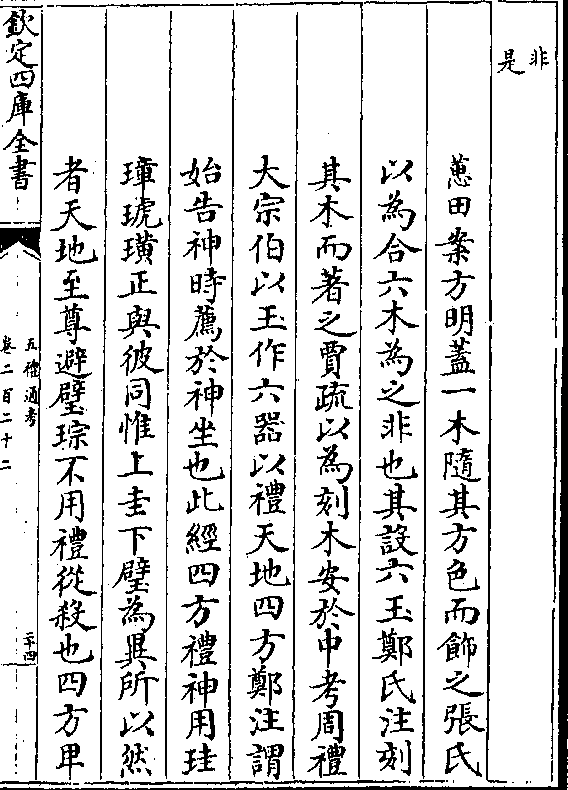 非
是
蕙田案方明蓋一木隨其方色而飾之張氏
以為合六木為之非也其設六玉鄭氏注刻
其木而著之賈疏以為刻木安於中考周禮
大宗伯以玉作六器以禮天地四方鄭注謂
始告神時薦於神坐也此經四方禮神用珪
璋琥璜正與彼同惟上圭下璧為異所以然
者天地至尊避璧琮不用禮從殺也四方卑
欽定四庫全書
五禮通考
卷二百二十二
二十四